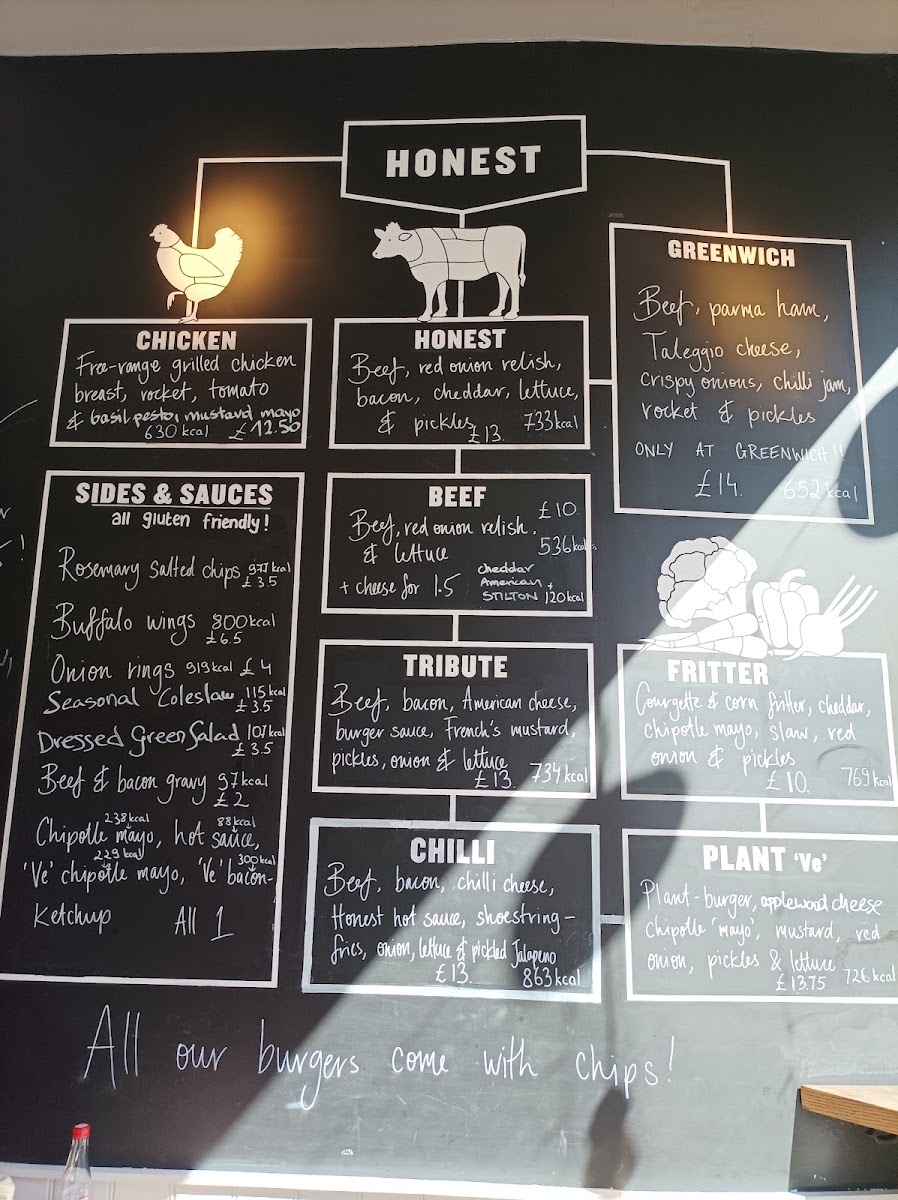 HONEST
CHICKEN
Free-range grilled chicken
breast, rocket, tomato
& basil pesto, mustard mayo
630 kcal £12.50
HONEST
Beef, red onion relish,
bacon, cheddar, lettuce,
& pickles £13. 733 kcal
GREENWICH
Beef, parma ham,
Taleggio cheese,
crispy onions, chilli jam,
rocket & pickles
ONLY AT GREENWICH!!
£14. 652 kcal
SIDES & SAUCES
all gluten friendly!
Rosemary salted chips 977 kcal
£3.5
Buffalo wings 800 kcal
£6.5
Onion rings 919 kcal £4
Seasonal Coleslaw 115 kcal
£3.5
Dressed Green Salad 107 kcal
£3.5
Beef & bacon gravy 97 kcal
£2
238 kcal 88 kcal
Chipotle mayo, hot sauce,
229 kcal 300 kcal
'Ve' chipotle mayo, 'Ve' bacon-
Ketchup All 1
BEEF
£10
Beef, red onion relish.
& lettuce 536 kcal
+ cheese for 1.5 cheddar
American +
STILTON 120 kcal
TRIBUTE
Beef, bacon, American cheese,
burger sauce, French's mustard,
pickles, onion & lettuce
£13. 734 kcal
CHILLI
Beef, bacon, chilli cheese,
Honest hot sauce, shoestring-
fries, onion, lettuce & pickled Jalapeno
£13. 863 kcal
FRITTER
Courgette & corn fritter, cheddar,
chipotle mayo, slaw, red
onion & pickles
£10. 769 kcal
PLANT 'Ve'
Plant-burger, applewood cheese
chipotle 'mayo', mustard, red
onion, pickles & lettuce
£13.75 726 kcal
All our burgers come with chips!